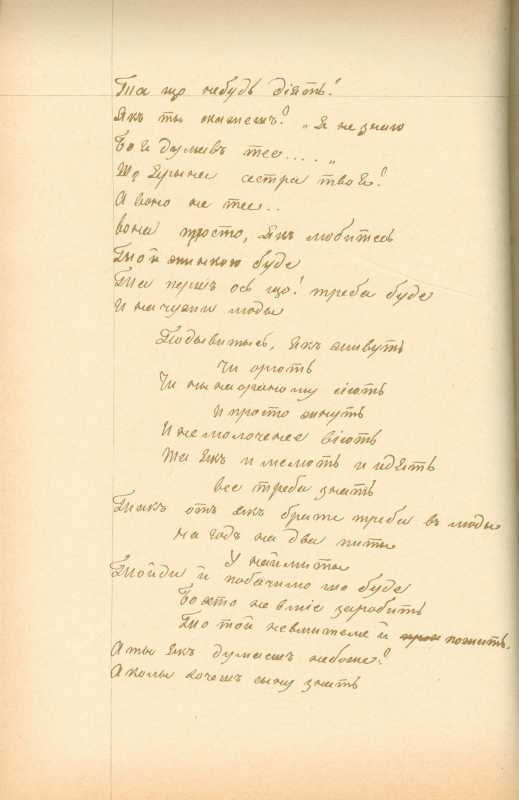 Та що небудь діять!
Якъ ты скажешъ? „Я не знаю
Бо й думавъ тее.... „
Що Ярына сестра твоя!
А воно не те..
вона просто, якъ любитесь
То й жинкою буде
Та перше ось що! треба буде
И на чужи люды
Подывытысь, якъ живуть
Чи орють
Чи ны на ораному сіють
И просто жнуть
И не молоченее віють
Та якъ и мелють и идять
все треба знать
Такъ отъ якъ брате треба въ люды
на годъ на два пити
У наймиты
Тойди й побачимо що буде
Бо хто не вміе заробить
То той невмитеме й пожить.
А ты якъ думаешъ небоже?
А колы хочешъ сыну знать